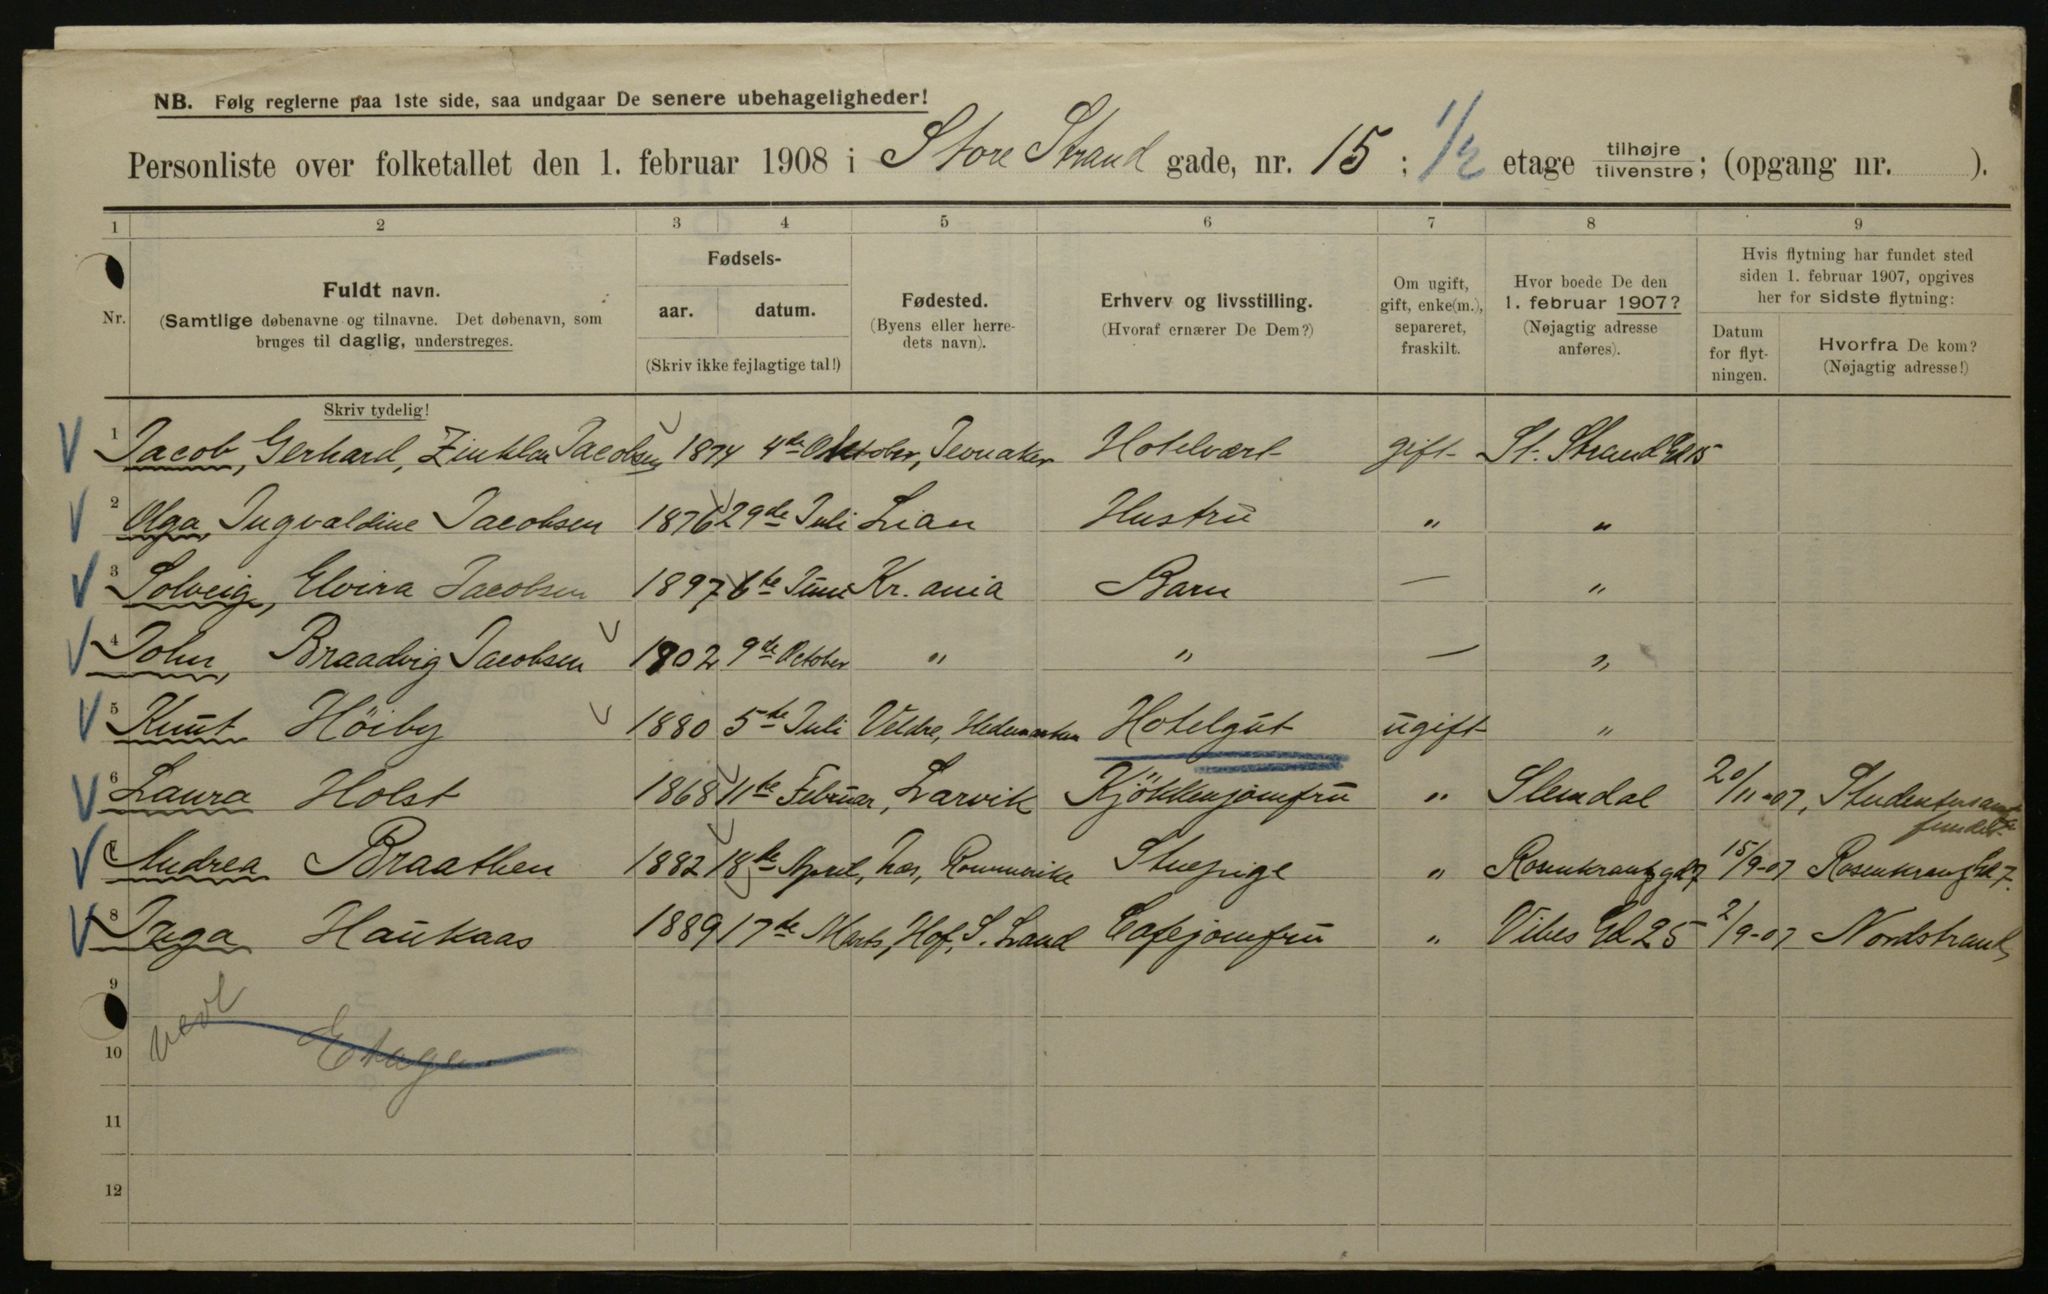 NB. Følg reglerne paa 1ste side, saa undgaar De senere ubehageligheder!
Personliste over folketallet den 1. februar 1908 i Store Strand gade, nr. 15 : 1/2 etage tilhøjre/tilvenstre; (opgang nr. ).
1 2 3 4 5 6 7 8 9
Nr. Fuldt navn. (Samtlige døbenavne og tilnavne. Det døbenavn, som bruges til daglig, understreges.
Fødsels-
aar. datum.
(Skriv ikke fejlagtige tal!)
Fødested. (Byens eller herredets navn).
Erhverv og livsstilling. (Hvoraf ernærer De Dem?)
Om ugift, gift, enke(m.), separeret, fraskilt.
Hvor boede De den 1. februar 1907? (Nøjagtig adresse anføres).
Hvis flytning har fundet sted siden 1. februar 1907, opgives her for sidste flytning:
Datum for flytningen.
Hvorfra De kom? (Nøjagtig adresse!)
Skriv tydelig!
1 Jacob, Gerhard, Zinklar Jacobsen 1874 4de October, Jevnaker Hotelvært gift St. Strand Gd 15
2 Olga, Ingvaldine Jacobsen 1876 29de Juli Lian Hustru " "
3 Solveig, Elvira Jacobsen 1897 6te Juni Kr.ania Barn — "
4 John, Braadvig Jacobsen 1902 9de October " " — "
5 Knut Höiby 1880 5te Juli Veldre, Hedemarken Hotelgut ugift "
6 Laura Holst 1868 11te Februar, Larvik Kjökkenjomfru " Slemdal 20/11-07, Studentersamfundet
7 Andrea Braathen 1882 18de April, Næs, Romerike Stuepige " Rosenkrantzgd 7 15/9-07 Rosenkranz Gd 7.
8 Inga Haukaas 1889 17de Marts, Hof, S. Land Cafejomfru " Vibes Gd 25 2/9-07 Nordstrand
9
10 Etage
11
12